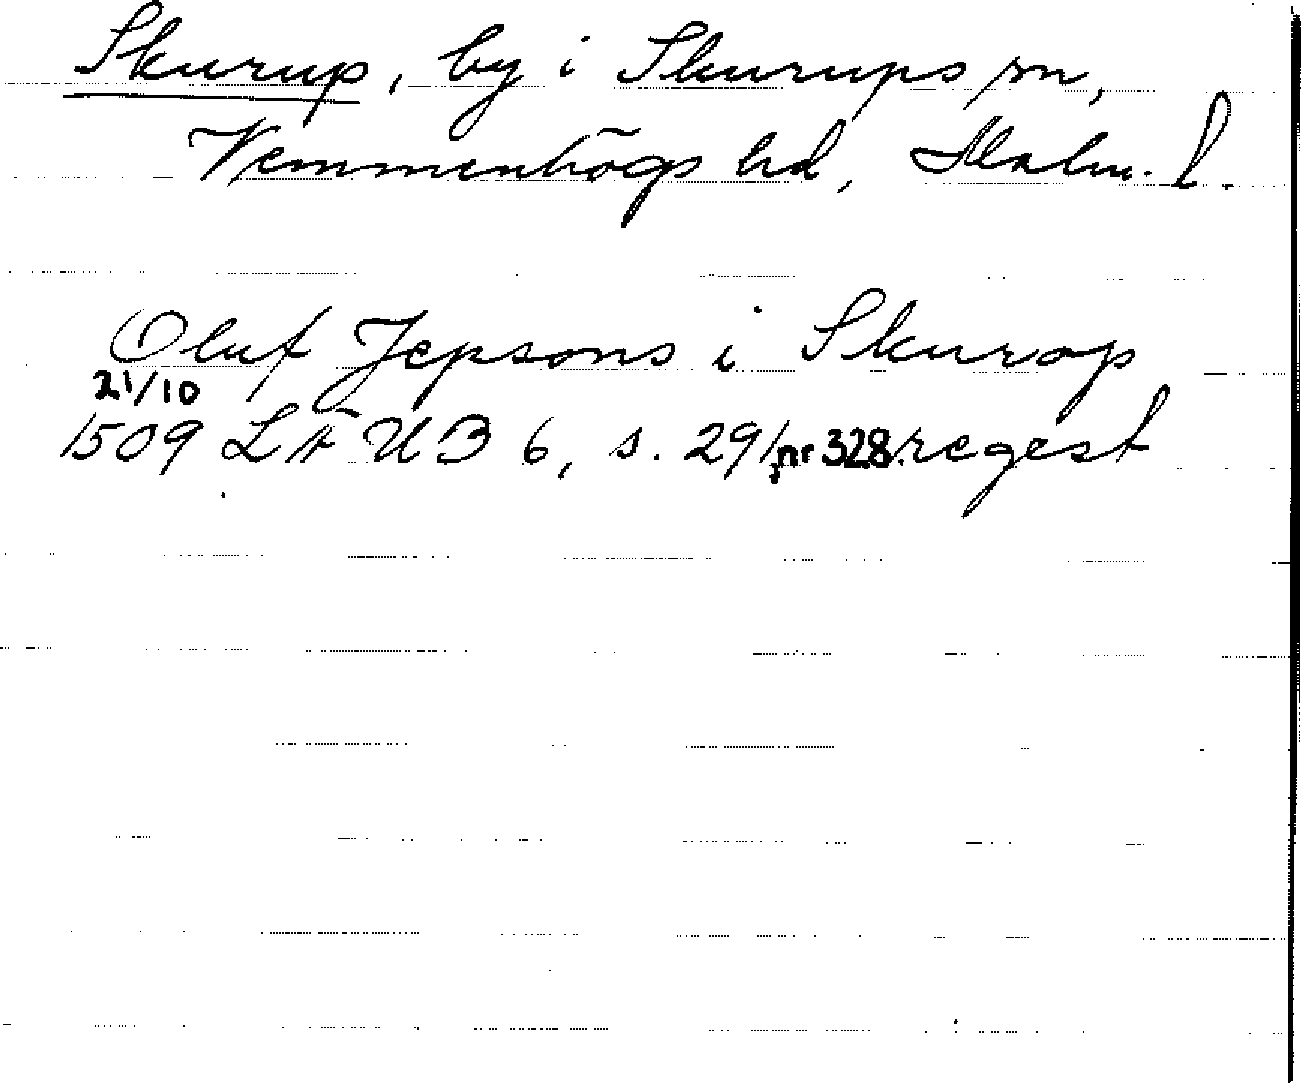 Skurup, by i Skurups sn,
Vemmenhögs hd, Malm. l.
Oluf Jepsons i Skurop
21/10
1509 LÄUB 6, s. 291, nr 328. regest